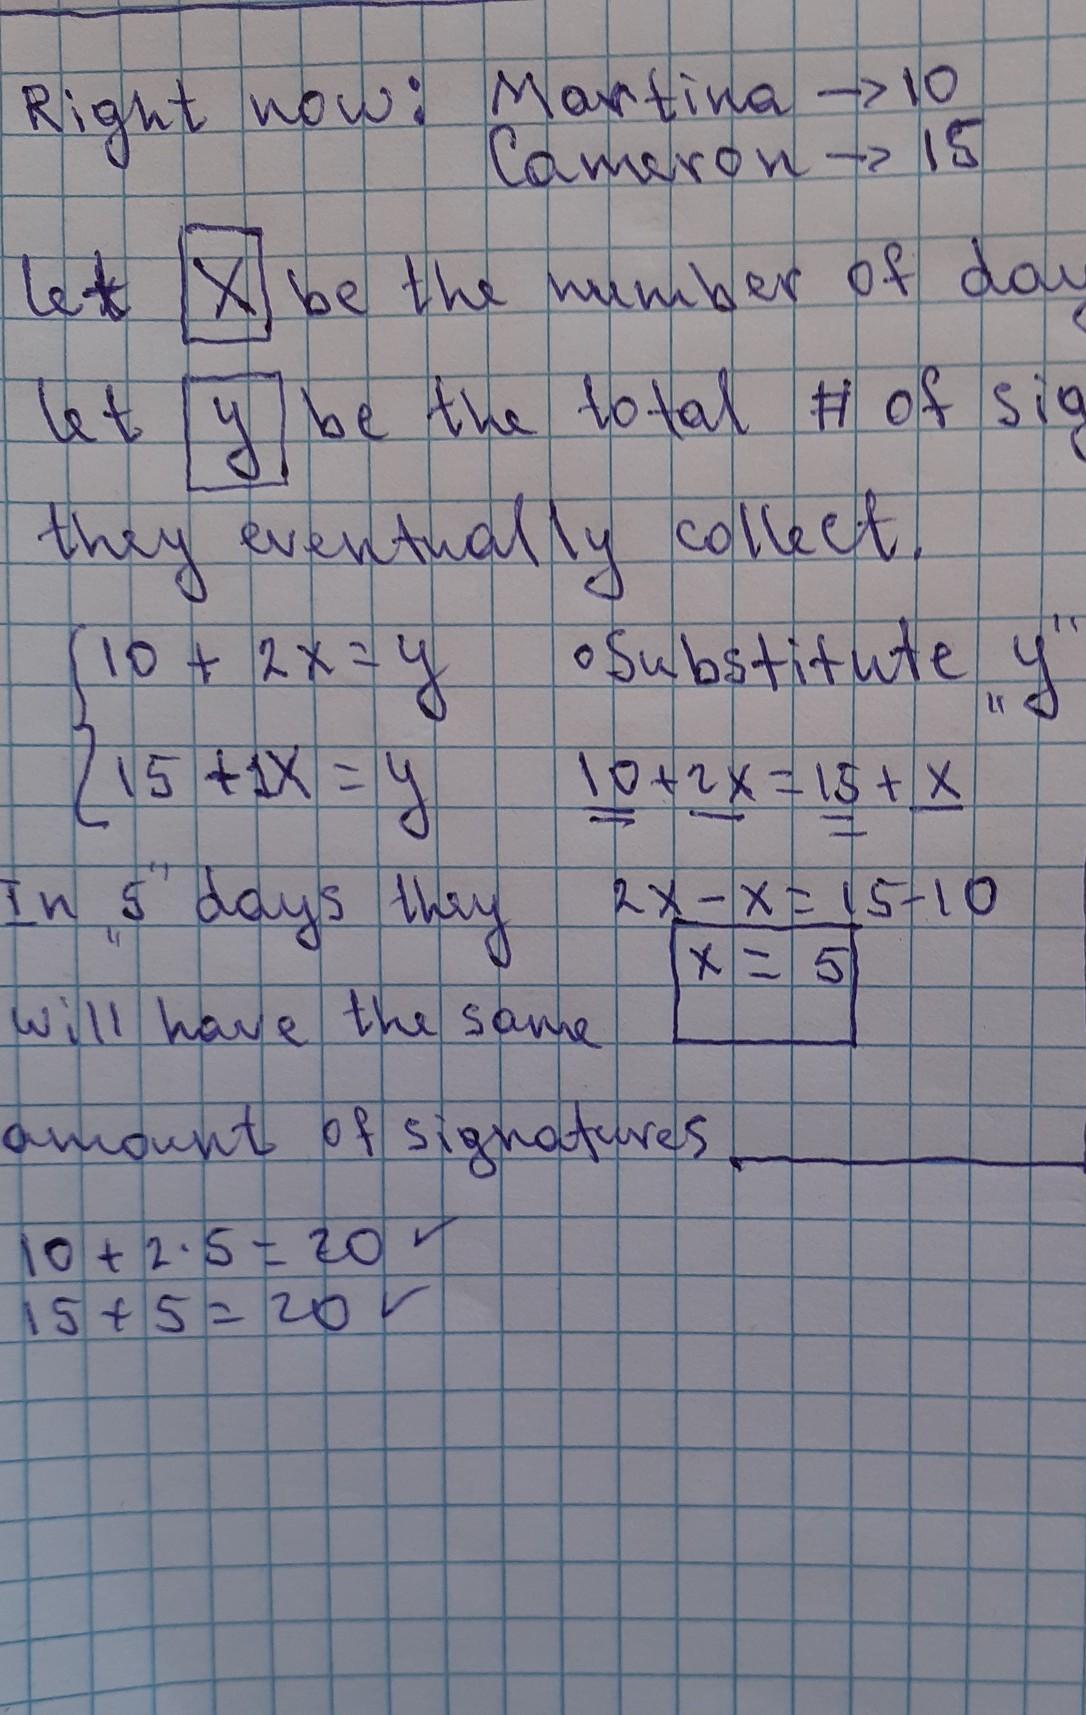 Right now: Martina → 10
Cameron → 15
let x be the number of day
let y be the total # of sig
they eventually collect.
10 + 2x = y
15 + 1x = y
In „5" days they
will have the same
amount of signatures
10 + 2 · 5 = 20 ✓
15 + 5 = 20 ✓
∘ Substitute „y"
10 + 2x = 15 + x
2x - x = 15 - 10
x = 5